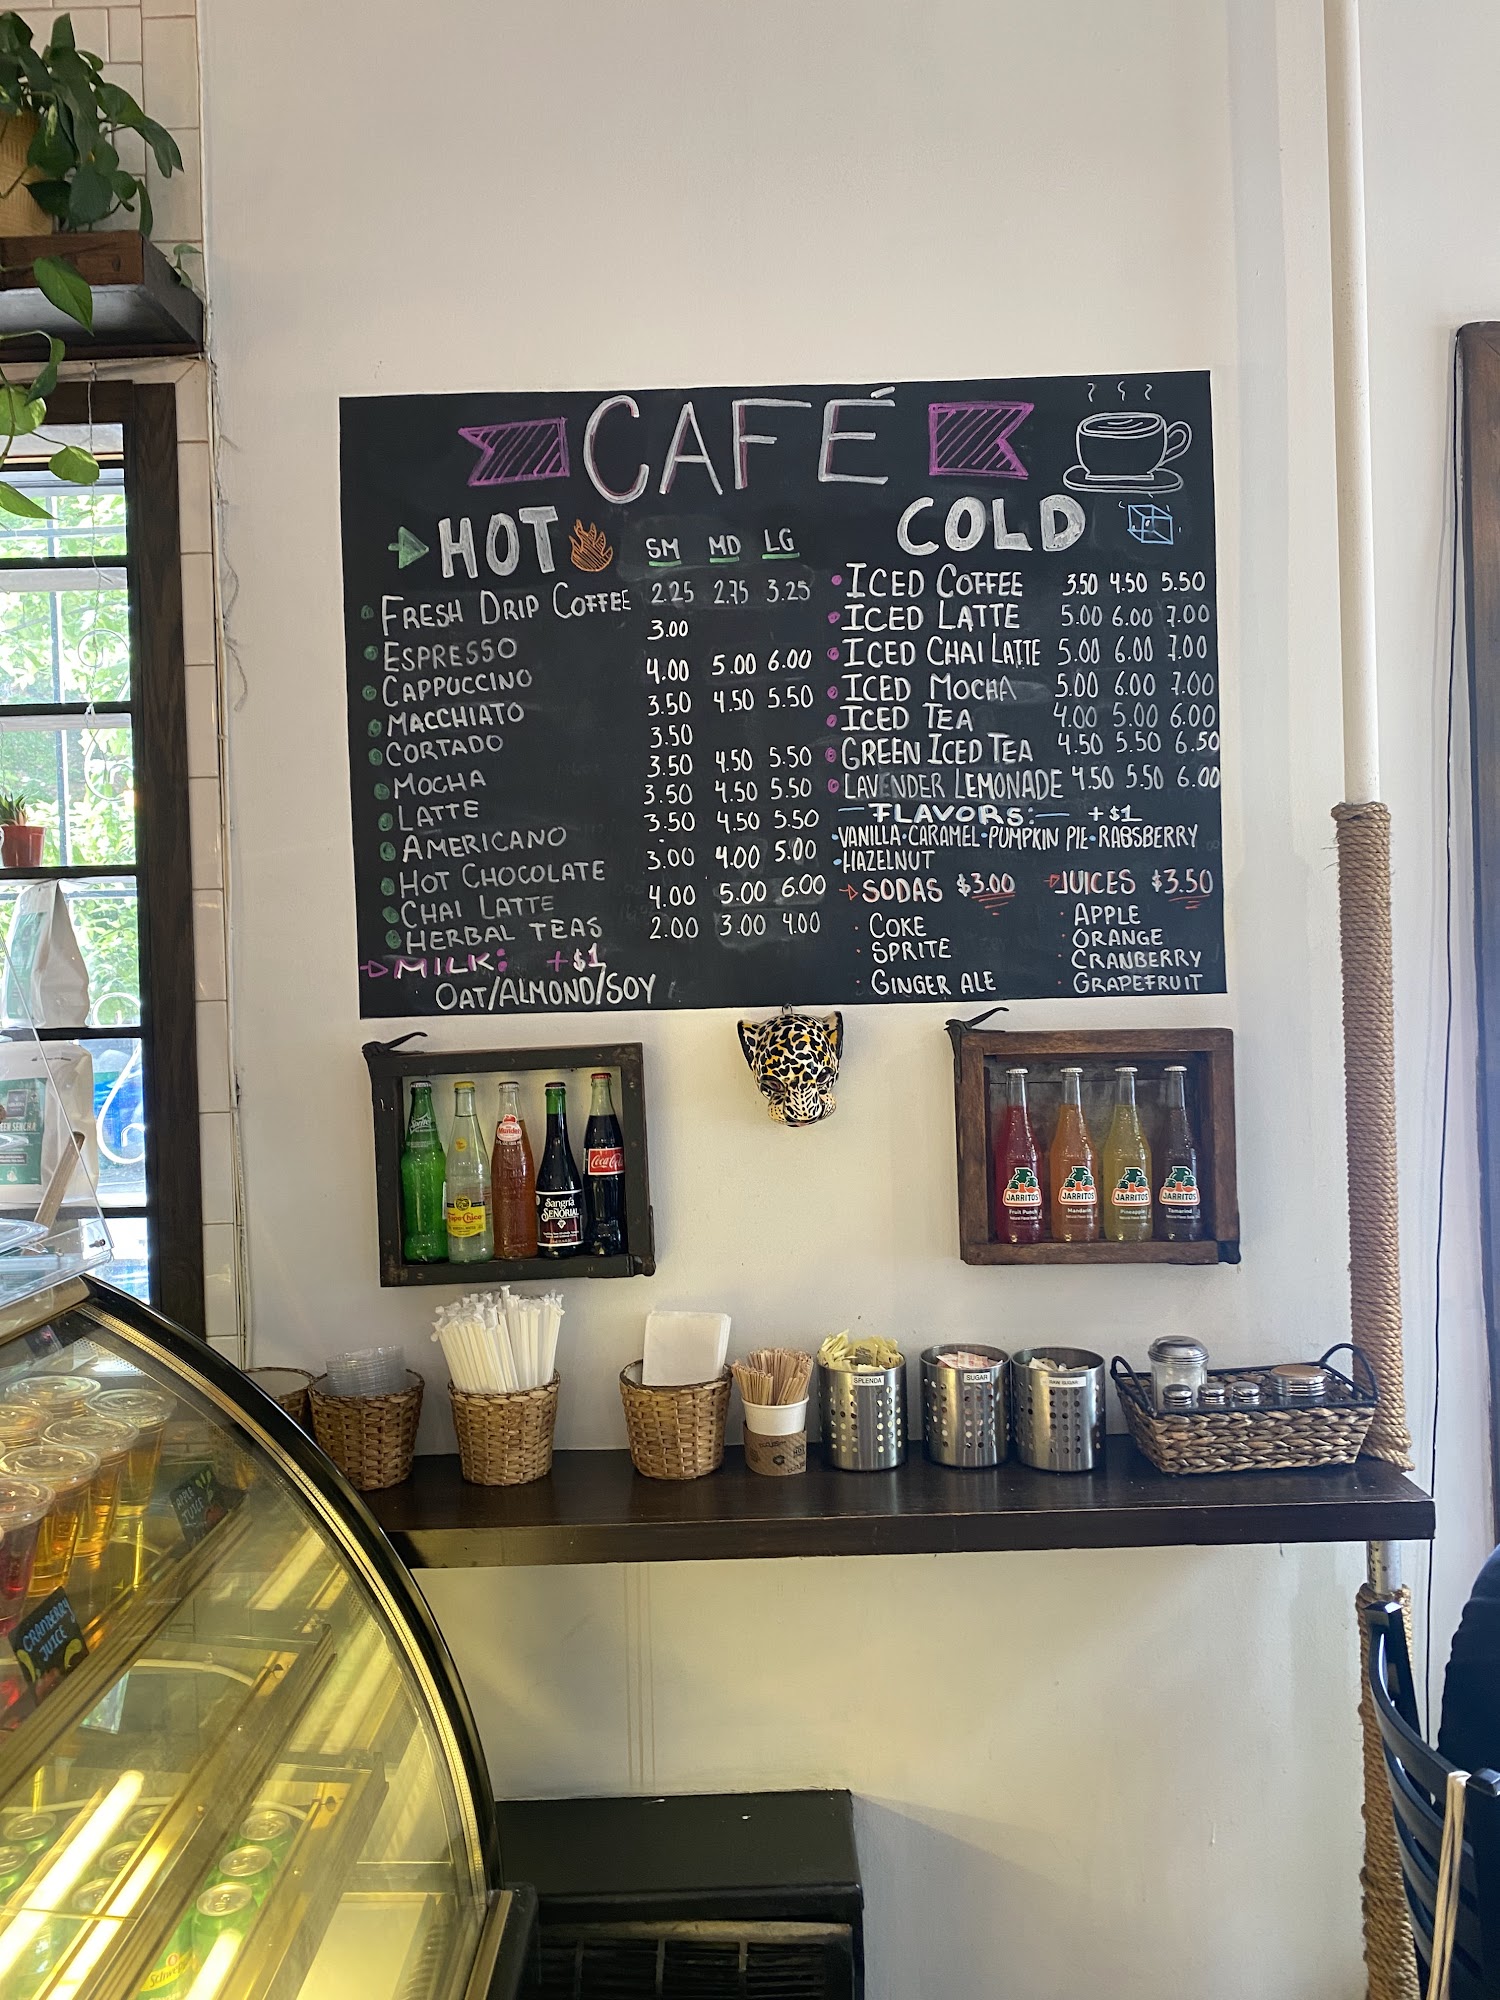 CAFÉ
HOT SM MD LG
FRESH DRIP COFFEE 2.25 2.75 3.25
ESPRESSO 3.00
CAPPUCCINO 4.00 5.00 6.00
MACCHIATO 3.50 4.50 5.50
CORTADO 3.50
MOCHA 3.50 4.50 5.50
LATTE 3.50 4.50 5.50
AMERICANO 3.50 4.50 5.50
HOT CHOCOLATE 3.00 4.00 5.00
CHAI LATTE 4.00 5.00 6.00
HERBAL TEAS 2.00 3.00 4.00
MILK: +$1
OAT/ALMOND/SOY
COLD
ICED COFFEE 3.50 4.50 5.50
ICED LATTE 5.00 6.00 7.00
ICED CHAI LATTE 5.00 6.00 7.00
ICED MOCHA 5.00 6.00 7.00
ICED TEA 4.00 5.00 6.00
GREEN ICED TEA 4.50 5.50 6.50
LAVENDER LEMONADE 4.50 5.50 6.00
FLAVORS: +$1
VANILLA • CARAMEL • PUMPKIN PIE • RABSBERRY
• HAZELNUT
SODAS $3.00
COKE
SPRITE
GINGER ALE
JUICES $3.50
APPLE
ORANGE
CRANBERRY
GRAPEFRUIT
Sprite
Topo Chico
Mundet
Sangría
SEÑORIAL
Coca-Cola
JARRITOS
Fruit Punch
JARRITOS
Mandarin
JARRITOS
Pineapple
JARRITOS
Tamarind
SPLENDA
SUGAR
RAW SUGAR
GREEN SENCHA
APPLE
JUICE
CRANBERRY
JUICE